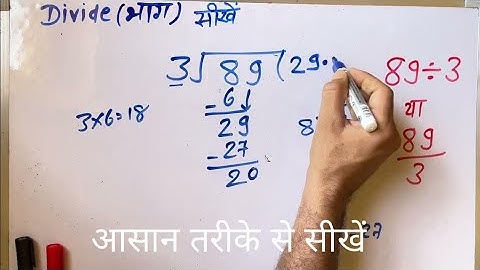 Divide (भाग) सीखें
3√89(29.
- 6↓
29
- 27
20
3×6=18
8
89÷3
या
89
3
27
आसान तरीके से सीखें